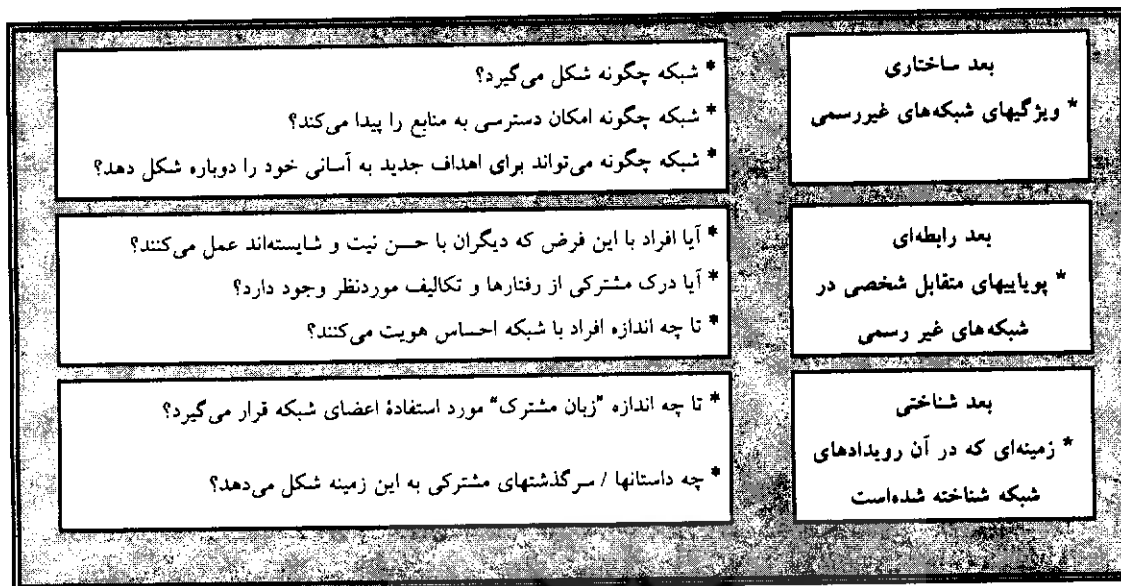 بعد ساختاری
* ویژگیهای شبکه‌های غیررسمی
* شبکه چگونه شکل می‌گیرد؟
* شبکه چگونه امکان دسترسی به منابع را پیدا می‌کند؟
* شبکه چگونه می‌تواند برای اهداف جدید به آسانی خود را دوباره شکل دهد؟
بعد رابطه‌ای
* پویاییهای متقابل شخصی در
شبکه‌های غیر رسمی
* آیا افراد با این فرض که دیگران با حسن نیت و شایسته‌اند عمل می‌کنند؟
* آیا درک مشترکی از رفتارها و تکالیف موردنظر وجود دارد؟
* تا چه اندازه افراد با شبکه احساس هویت می‌کنند؟
بعد شناختی
* زمینه‌ای که در آن رویدادهای
شبکه شناخته شده‌است
* تا چه اندازه "زبان مشترک" مورد استفادهٔ اعضای شبکه قرار می‌گیرد؟
* چه داستانها / سرگذشتهای مشترکی به این زمینه شکل می‌دهد؟